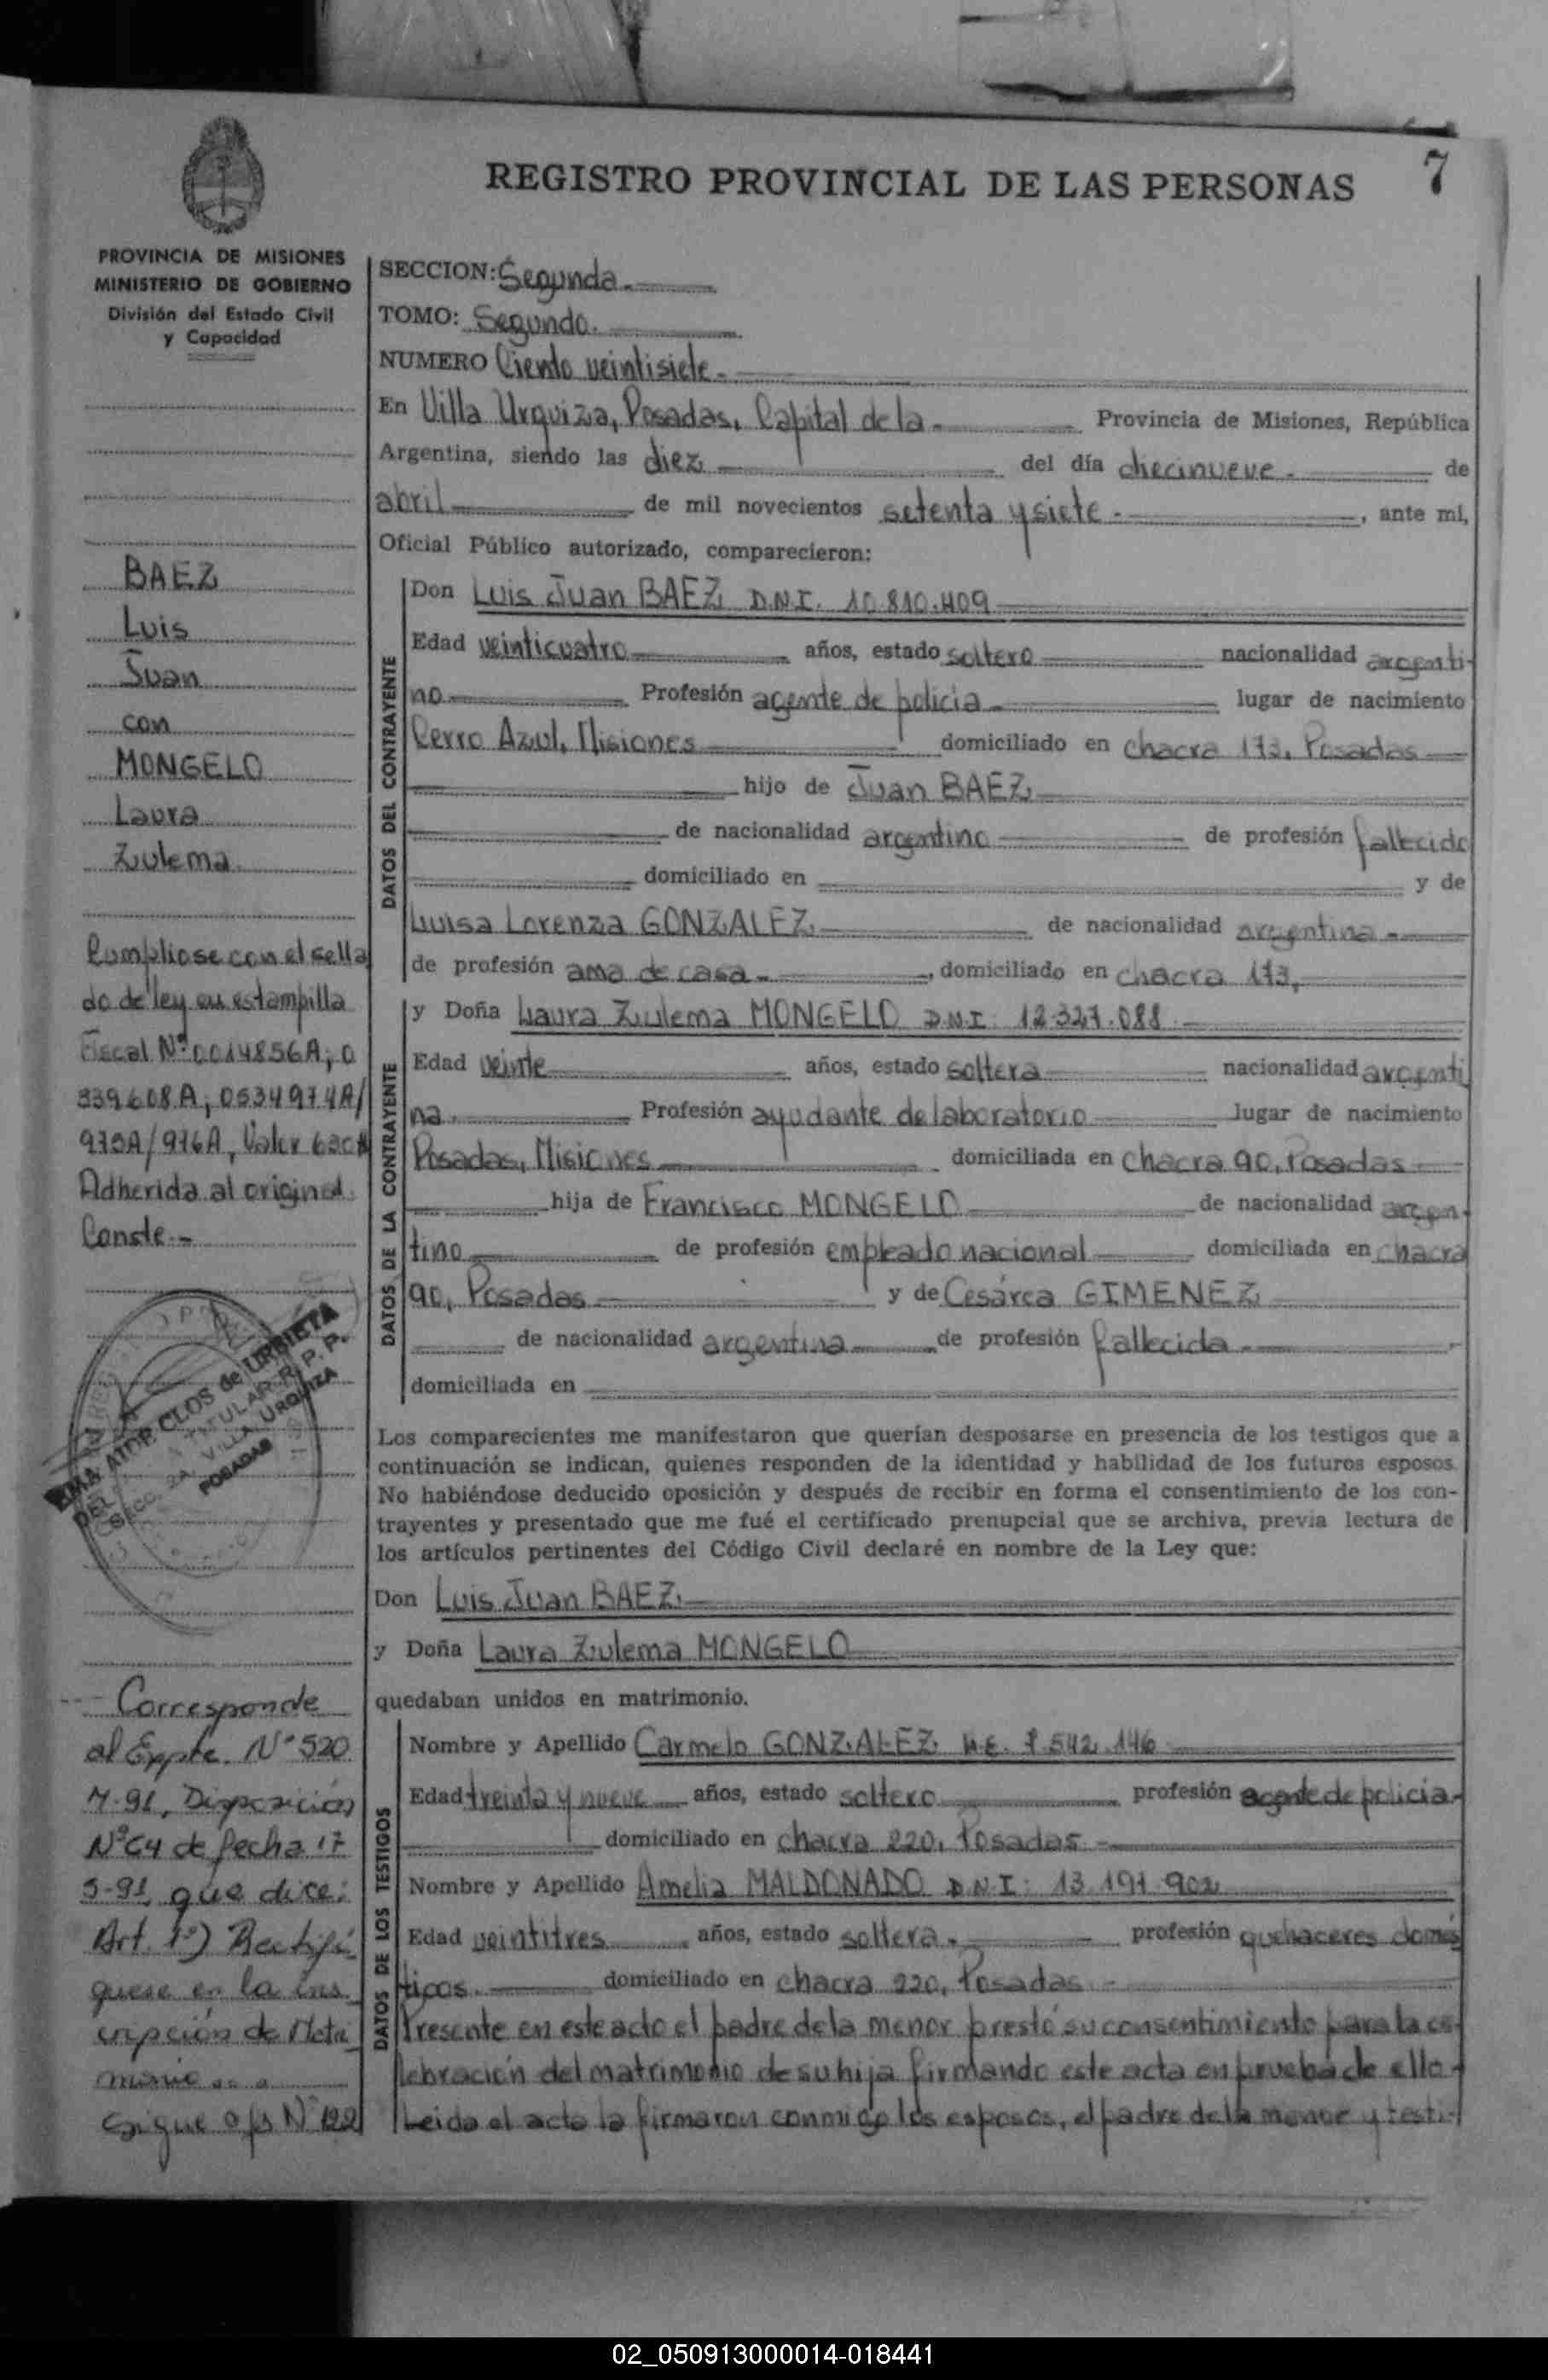 REGISTRO PROVINCIAL DE LAS PERSONAS
7
PROVINCIA DE MISIONES
MINISTERIO DE GOBIERNO
División del Estado Civil
y Capacidad
BAEZ
Luis
Juan
con
MONGELO
Laura
Zulema
Cumpliose con el sella
do de ley en estampilla
Fiscal Nº 0014856A; 0
339608A; 0534974A/
975A/976A, Valor 630
Adherida al original.
Conste.-
EMA AIDE CLOS de URBIETA
DEL. TITULAR R. P. P.
SECC. 2A. VILLA URQUIZA
POSADAS
Corresponde
al Expte. Nº 520
M-91, Disposición
Nº 64 de fecha 17
5-91, que dice:
Art. 1º) Rectifí
quese en la ins
cripción de Matri
monio
Sigue Nº 122
SECCION: Segunda.
TOMO: Segundo.
NUMERO Ciento veintisiete.-
En Villa Urquiza, Posadas, Capital de la- Provincia de Misiones, República
Argentina, siendo las diez del día diecinueve.- de
abril de mil novecientos setenta y siete.-, ante mí,
Oficial Público autorizado, comparecieron:
DATOS DEL CONTRAYENTE
Don Luis Juan BAEZ D.N.I. 10.810.409
Edad veinticuatro años, estado soltero nacionalidad argenti-
no Profesión agente de policia- lugar de nacimiento
Cerro Azul, Misiones domiciliado en chacra 173, Posadas
hijo de Juan BAEZ
de nacionalidad argentino de profesión fallecido
domiciliado en y de
Luisa Lorenza GONZALEZ de nacionalidad argentina-
de profesión ama de casa-, domiciliado en chacra 173,
DATOS DE LA CONTRAYENTE
y Doña Laura Zulema MONGELO D.N.I. 12.327.088
Edad veinte años, estado soltera nacionalidad argenti
na. Profesión ayudante de laboratorio lugar de nacimiento
Posadas, Misiones domiciliada en chacra 90, Posadas
hija de Francisco MONGELO de nacionalidad argen-
tino de profesión empleado nacional domiciliada en chacra
90, Posadas y de Cesárea GIMENEZ
de nacionalidad argentina de profesión fallecida.
domiciliada en
Los comparecientes me manifestaron que querían desposarse en presencia de los testigos que a
continuación se indican, quienes responden de la identidad y habilidad de los futuros esposos.
No habiéndose deducido oposición y después de recibir en forma el consentimiento de los con-
trayentes y presentado que me fué el certificado prenupcial que se archiva, previa lectura de
los artículos pertinentes del Código Civil declaré en nombre de la Ley que:
Don Luis Juan BAEZ
y Doña Laura Zulema MONGELO
quedaban unidos en matrimonio.
DATOS DE LOS TESTIGOS
Nombre y Apellido Carmelo GONZALEZ 7.542.146
Edad treinta y nueve años, estado soltero profesión agente de policia-
domiciliado en chacra 220, Posadas.-
Nombre y Apellido Amelia MALDONADO D.N.I: 13.191.902
Edad veintitres años, estado soltera. profesión quehaceres domés
ticos. domiciliado en chacra 220, Posadas.-
Presente en este acto el padre de la menor prestó su consentimiento para la ce-
lebración del matrimonio de su hija firmando este acta en prueba de ello-
Leida el acta la firmaron conmigo los esposos, el padre de la menor y testi-
02_050913000014-018441